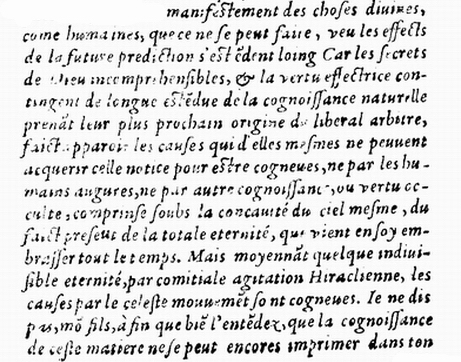 manifestement des choses diuines,
come humaines, que ce ne se peut faire, veu les effects
de la future prediction s'estẽdent loing Car les secrets
de Dieu incomprehensibles, & la vertu effectrice con-
tingent de longue estẽdue de la cognoissance naturelle
prenãt leur plus prochain origine du liberal arbitre,
faict apparoir les causes qui d'elles mesmes ne peuuent
acquerir celle notice pour estre cogneues, ne par les hu-
mains augures, ne par autre cognoissance, ou vertu oc-
culte, comprinse soubs la concauité du ciel mesme, du
faict present de la totale eternité, qui vient en soy em-
brasser tout le temps. Mais moyennãt quelque indiui-
sible eternité, par comitiale agitation Hiraclienne, les
causes par le celeste mouuemẽt sont cogneues. Ie ne dis
pas, mõ fils, à fin que biẽ l'entẽdez, que la cognoissance
de ceste matiere ne se peut encores imprimer dans ton